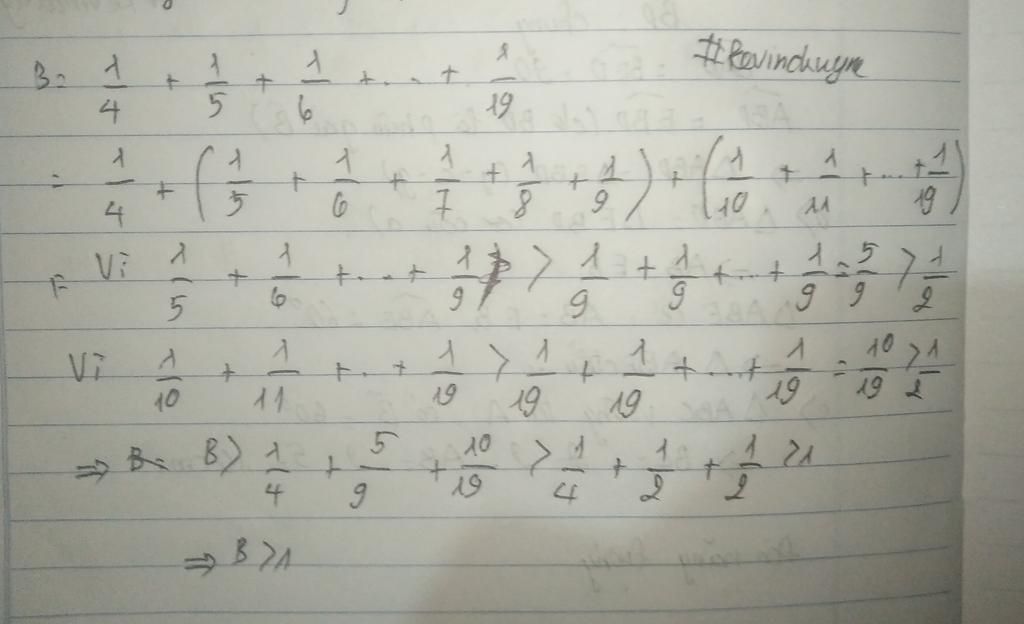 B = 1/4 + 1/5 + 1/6 + ... + 1/19 #Kevinchuyn
= 1/4 + (1/5 + 1/6 + 1/7 + 1/8 + 1/9) + (1/10 + 1/11 + ... + 1/19)
Vì 1/5 + 1/6 + ... + 1/9 > 1/9 + 1/9 + ... + 1/9 = 5/9 > 1/2
Vì 1/10 + 1/11 + ... + 1/19 > 1/19 + 1/19 + ... + 1/19 = 10/19 > 1/2
⇒ B > 1/4 + 5/9 + 10/19 > 1/4 + 1/2 + 1/2 > 1
⇒ B > 1